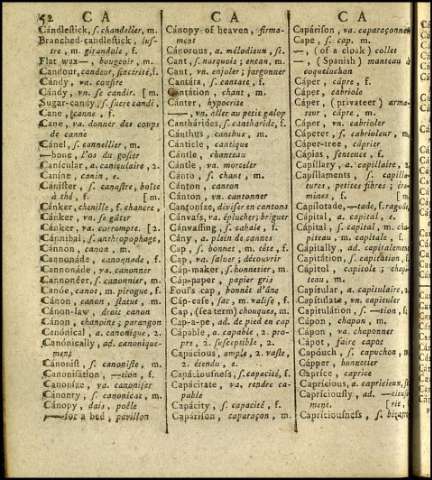 52
C A
Cándleſtick, ſ. chandelier, m.
Branched-candleſtick, luſ-
tre, m. girandole, f.
Flat wax—, bougeoir, m.
Cándour, candeur, ſincérité, f.
Cándy, va. confire
Cándy, vn. ſe candir. [m.
Sugar-candy, ſſ. ſucre candi,
Cane, canne, f.
Cane, va. donner des coups
de canne
Cánel, ſ. cannellier, m.
—bone, l'os du goſier
Canícular, a. caniculaire, 2.
Canine, canin, e.
Cániſter, ſ. canaſtre, boîte
à thé, f. [m.
Cánker, chenille, f. chancre,
Cánker, vn. ſe gâter
Cánker, va. corrompre. [2.
Cánnibal, ſ. antropophage,
Cánnon, canon, m.
Cannonáde, canonnade, f.
Cannonáde, va. canonner
Cannonéer, ſ. canonnier, m.
Canóe, canot, m. pirogue, f.
Cánon, canon, ſtatut, m.
Cánon-law, droit canon
Cánon, chanoine; parangon
Canónical, a. canonique, 2.
Canónically, ad. canonique-
ment
Cánoniſt, ſ. canoniſte, m.
Canoniſátion, —tion, f.
Canonize, va. canoniſer
Cánonry, ſ. canonicat, m.
Cánopy, dais, poële
—for a bed, pavillon
C A
Cánopy of heaven, firma-
ment
Canórous, a. mélodieux, ſe.
Cant, ſ. narquois; encan, m.
Cant, vn. enjoler; jargonner
Cantáta, ſ. cantate
Cantátion, chant, m.
Cánter, hypocrite
—, vn. aller au petit galop
Canthárides, ſ. cantharide, f.
Cánthus, canthus, m.
Cánticle, cantique
Cántle, chanteau
Cántle, va. morceler
Cánto, ſ. chant, m.
Cánton, canton
Cánton, vn. cantonner
Cantonize, diviſer en cantons
Cánvaſs, va. éplucher; briguer
Cánvaſſing, ſ. cabale, f.
Cány, a. plein de cannes
Cap, ſ. bonnet, m. tête, f.
Cap, va. ſaluer; découvrir
Cap-maker, ſ. bonnetier, m.
Cap-paper, papier gris
Fool's cap, bonnet d'âne
Cap-caſe, ſac, m. valiſe, f.
Cap, (ſea term) chouques, m.
Cap-a-pe, ad. de pied en cap
Cápable, a. capable, 2. pro-
pre, 2. ſuſceptible, 2.
Capácious, ample, 2. vaſte,
2. étendu, e.
Capáciouſneſs, ſ. capacité, f.
Capácitate, va. rendre ca-
pable
Capácity, ſ. capacité, f.
Capáriſon, caparaçon, m.
C A
Capáriſon, va. caparaçonner
Cape, ſ. cap, m.
—, (of a cloak) collet
—, (Spaniſh) manteau à
coqueluchon
Cáper, câpre, f.
Cáper, cabriole
Cáper, (privateer) arma-
teur, câpre, m.
Cáper, vn. cabrioler
Cáperer, ſ. cabrioleur, m.
Cáper-tree, câprier
Cápias, ſentence, f.
Capíllary, a. capillaire, 2.
Capíllaments, ſ. capilla-
tures, petites fibres; éta-
mines, f. [m.
Capilotade, —tade, f. ragoût,
Cápital, a. capital, e.
Cápital, ſ. capital, m. cha-
piteau, m. capitale, f.
Cápitally, ad. capitalement
Capitátion, ſ. capitation, f.
Cápitol, capitole; chapi-
teau, m.
Capítular, a. capitulaire, 2.
Capítulate, vn. capituler
Capitulátion, ſ. —tion, f.
Cápon, chapon, m.
Cápon, va. chaponner
Capot, faire capot
Capóuch, ſ. capuchon, m.
Cápper, bonnetier
Caprice, caprice
Caprícious, a. capricieux, ſe
Capríciouſly, ad. —cieuſe-
ment.
Capríciouſneſs, ſ. bizarre-